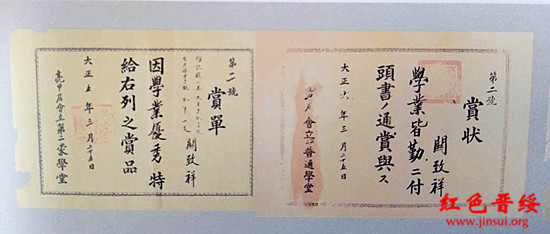 第二號
賞状
関致祥
學業皆勤ニ付
頭書ノ通賞與ス
大正六年三月二十五日
會立普通學堂
第二號
賞單
関致祥
因學業優秀特
給右列之賞品
大正五年三月二十五日
亮甲店會立第二蒙學堂
红色晋绥
www.jinsui.org